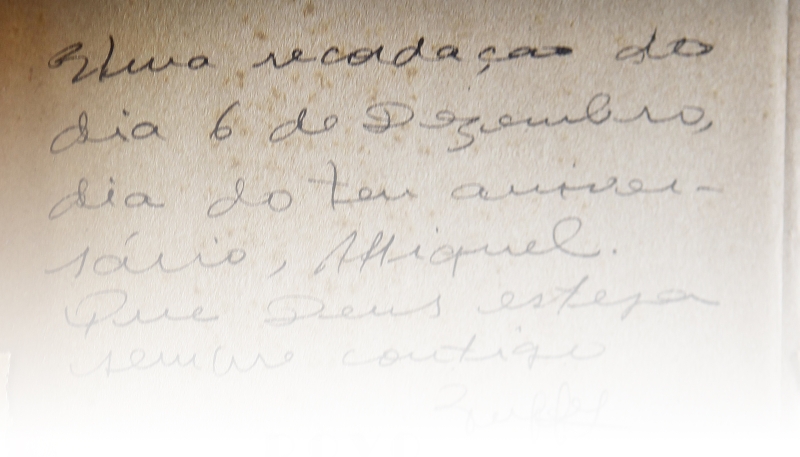 Uma recordação do
dia 6 de Dezembro,
dia do teu aniver-
sário, Miguel.
Que Deus esteja
sempre contigo